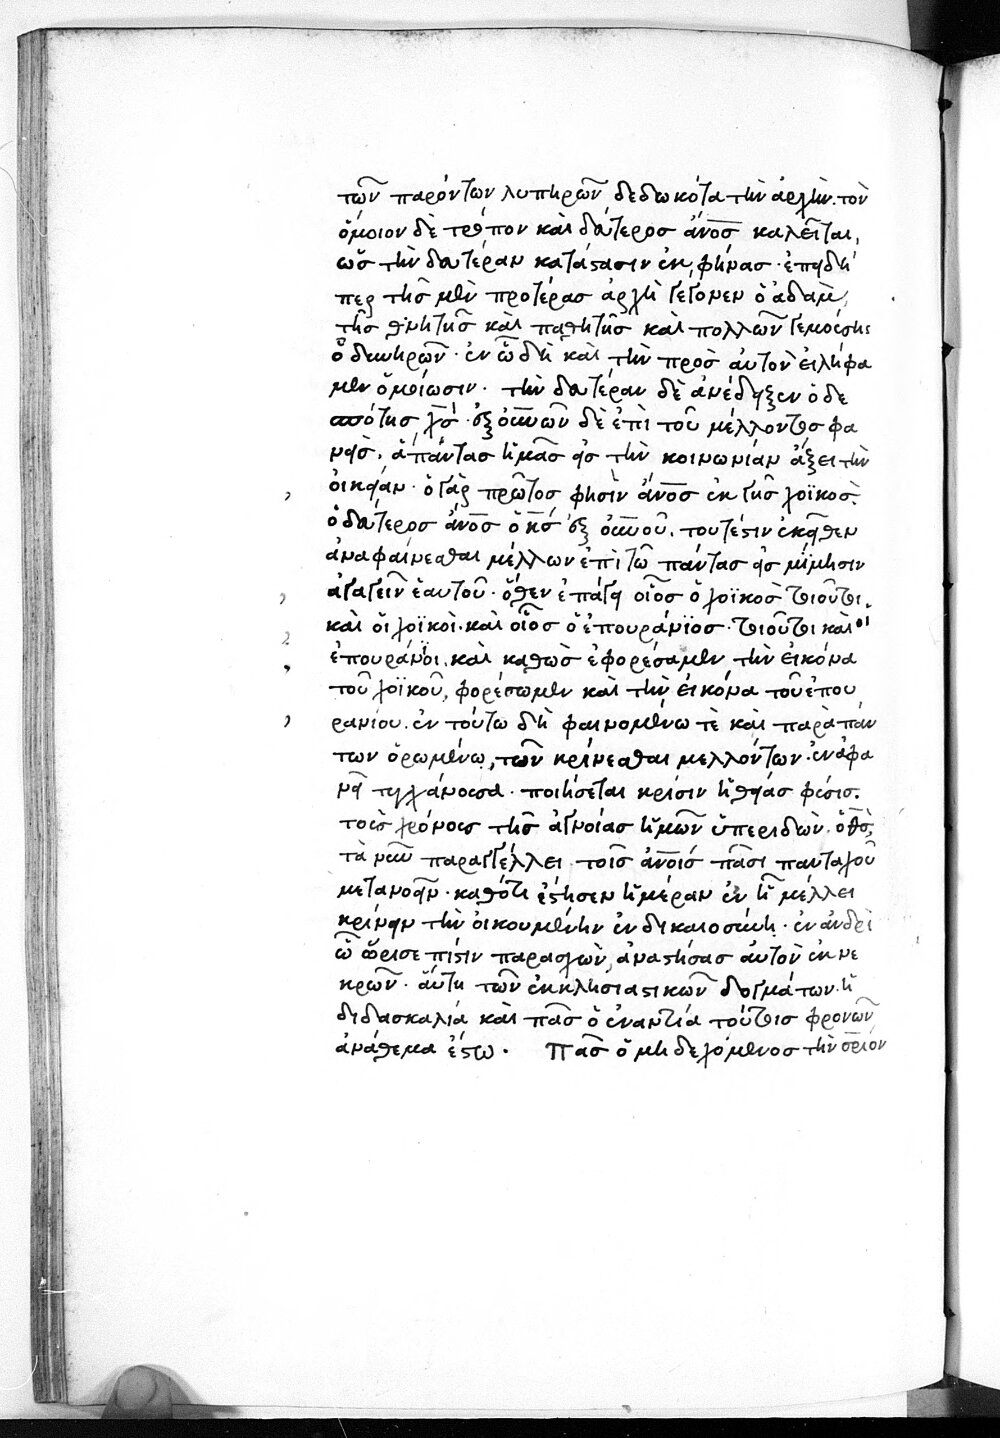 τῶν παρόντων λυπηρῶν δεδωκότα τὴν ἀρχήν. τὸν
ὅμοιον δὲ τρόπον καὶ δεύτερος ἄν̅ο̅ς καλεῖται,
ὡς τὴν δευτέραν κατάστασιν ἐκφήνας· ἐπειδή
περ τῆς μὲν προτέρας ἀρχὴ γέγονεν ὁ ἀδὰμ,
τῆς θνητῆς καὶ παθητῆς καὶ πολλῶν γεμούσης
ὀδυνηρῶν· ἐν ᾧ δὴ καὶ τὴν πρὸς αὐτὸν εἰλήφα
μεν ὁμοίωσιν· τὴν δευτέραν δὲ ἀνέδειξεν ὁ δε
σπότης χ̅ς̅· ἐξ ο̅υ̅ν̅ῶν δὲ ἐπὶ τοῦ μέλλοντος φα
νεὶς, ἅπαντας ἡμᾶς εἰς τὴν κοινωνίαν ἄξει τὴν
οἰκείαν· ὁ γὰρ πρῶτος φησὶν ἄν̅ο̅ς ἐκ γῆς χοϊκός·
ὁ δεύτερος ἄν̅ο̅ς ὁ κ̅ς̅ ἐξ ο̅υ̅ν̅οῦ. τουτέστιν ἐκεῖθεν
ἀναφαίνεσθαι μέλλων ἐπὶ τῶ πάντας εἰς μίμησιν
ἀγαγεῖν ἑαυτοῦ· ὅθεν ἐπάγει οἷος ὁ χοϊκὸς τοιοῦτοι
καὶ οἱ χοϊκοὶ· καὶ οἷος ὁ ἐπουράνϊος· τοιοῦτοι καὶ οἱ
ἐπουράνϊοι, καὶ καθὼς ἐφορέσαμεν, τὴν εἰκόνα
τοῦ χοϊκοῦ, φορέσωμεν καὶ τὴν εἰκόνα τοῦ ἐπου
ρανίου. ἐν τούτω δὴ φαινομένω τὲ καὶ παρὰ πάν
των ὁρωμένω, τῶν κρίνεσθαι μελλόντων· ἐν ἀφα
νεῖ τυγχάνουσα· ποιήσεται κρίσιν ἡ θείας φύσις.
τοὺς χρόνους τῆς ἀγνοίας ἡμῶν ὑπεριδὼν. ὁ θ̅ς̅,
τὰ νῦν παραγγέλλει τοῖς ἀν̅ο̅ις πᾶσι πανταχοῦ
μετανοεῖν· καθότι ἔστησεν ἡμέραν ἐν ἧ μέλλει
κρίνειν τὴν οἰκουμένην ἐν δικαιοσύνη· ἐν ἀνδρὶ
ᾧ ὥρισε πίστιν παρασχὼν, ἀναστήσας αὐτὸν ἐκ νε
κρῶν· αὕτη τῶν ἐκκλησιαστικῶν δογμάτων ἡ
διδασκαλία καὶ πᾶς ὁ ἐναντία τούτοις φρονῶν
ἀνάθεμα ἔστω· Πᾶς ὁ μὴ δεχόμενος τὴν σ̅ρ̅ιον